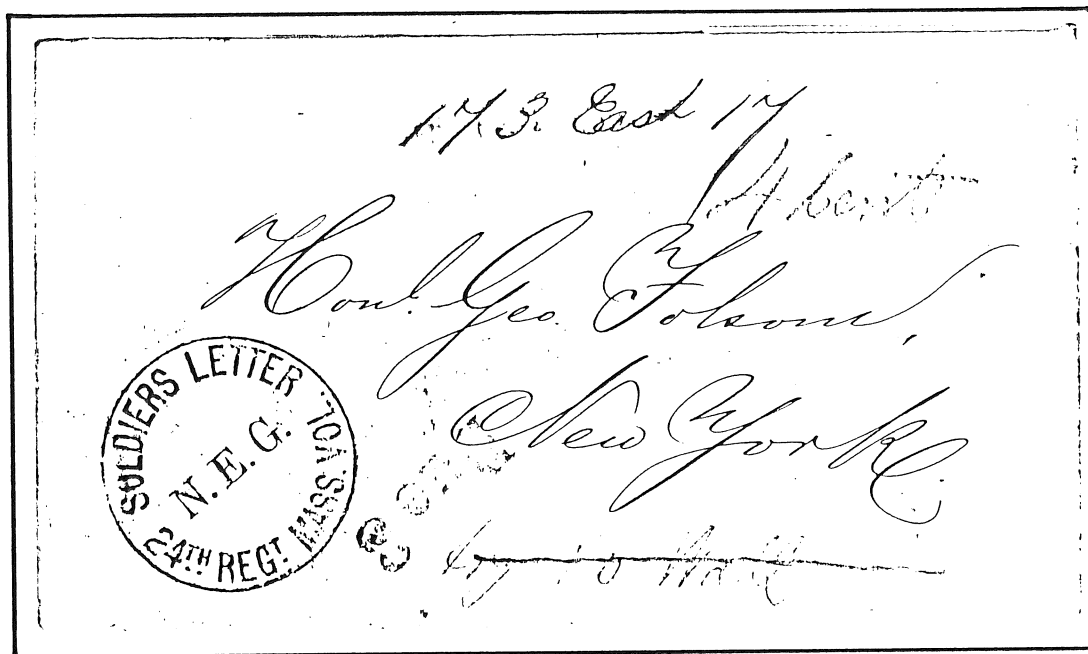 173 East 17
Honl. Geo. Folsom,
New York
SOLDIERS LETTER
24TH REGT. MASS. VOL
N.E.G.